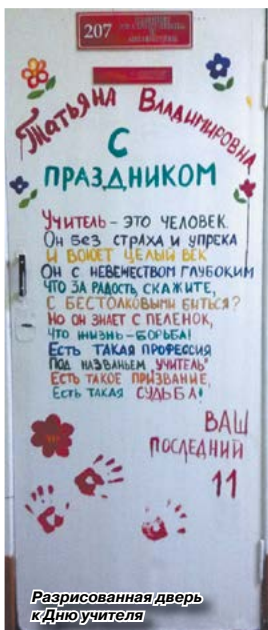 207
Татьяна Владимировна
С
ПРАЗДНИКОМ
Учитель - это человек.
Он без страха и упрека
И воюет целый век
Он с невежеством глубоким
Что за радость, скажите,
С бестолковыми биться?
Но он знает с пеленок,
Что жизнь - борьба!
Есть такая профессия
Под названьем "учитель"
Есть такое призвание,
Есть такая судьба!
ВАШ
последний
11
Разрисованная дверь
к Дню учителя